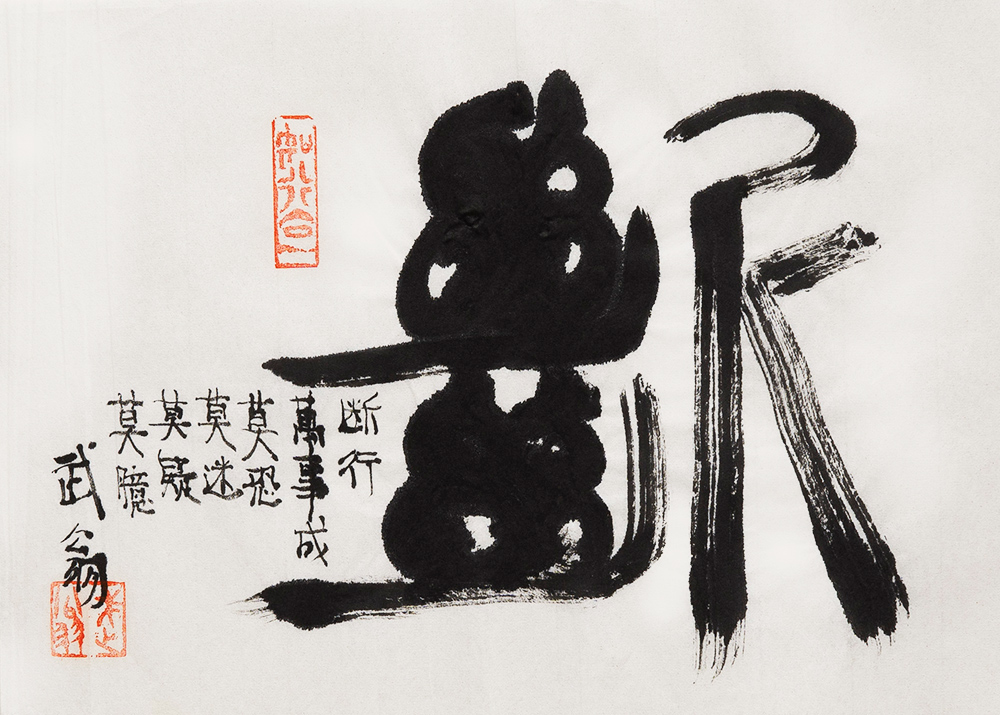 斷
断行
萬事成
莫恐
莫迷
莫疑
莫臆
武翁
知行合一